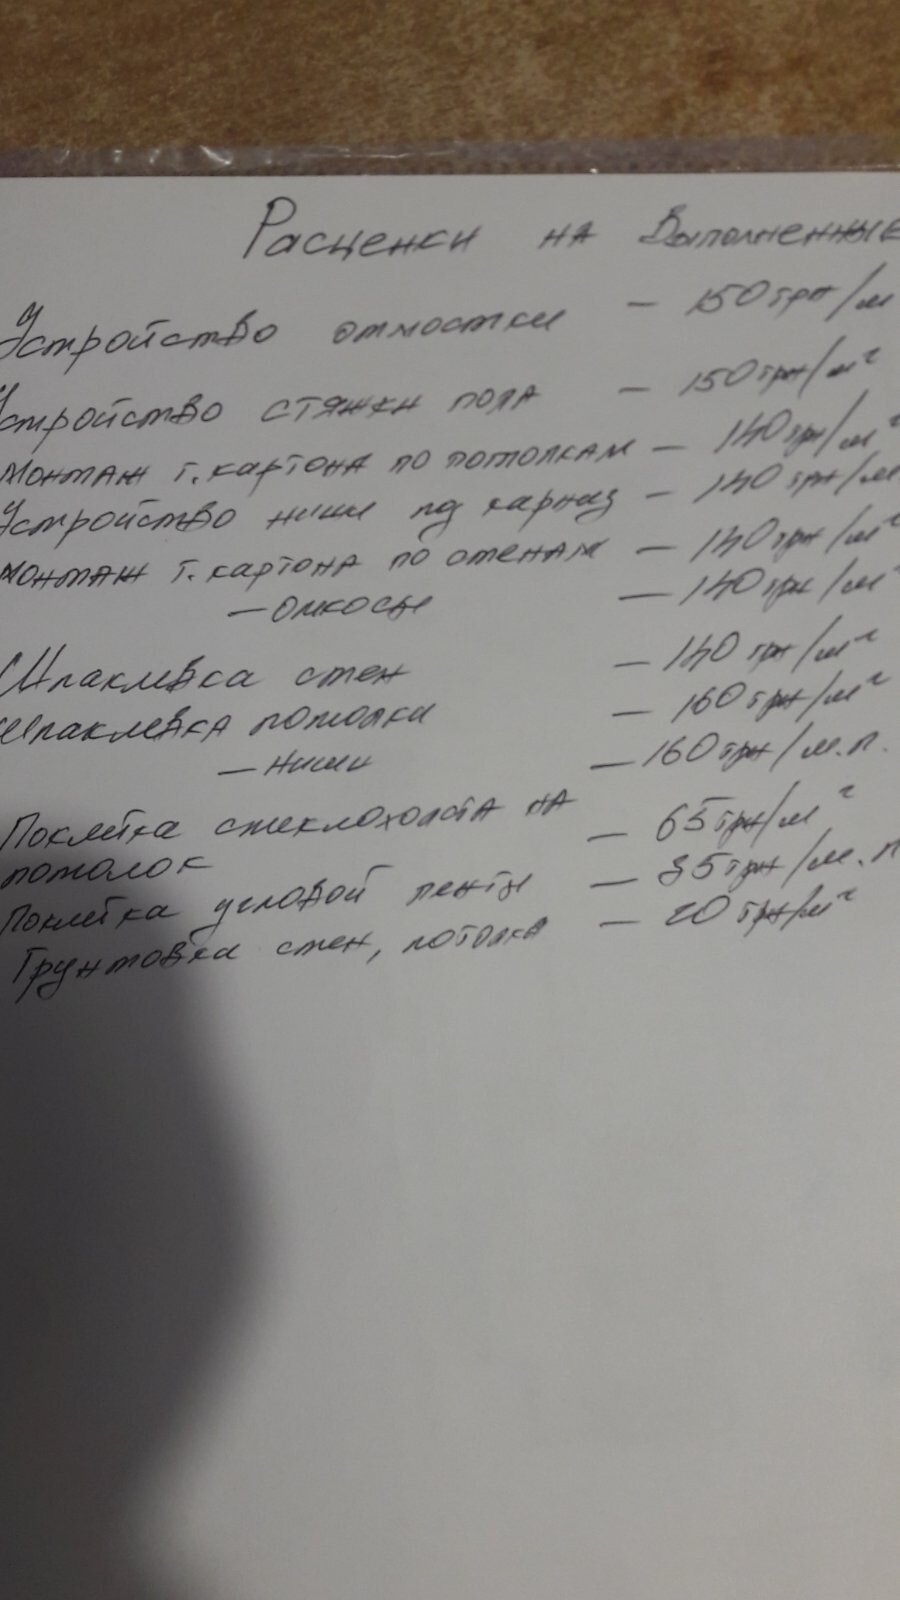 Расценки на Выполненные
Устройство отмостки — 150 грн/м
Устройство стяжки пола — 150 грн/м²
Монтаж г.картона по потолкам — 140 грн/м²
Устройство ниши под карниз — 140 грн/м
Монтаж г.картона по стенам — 140 грн/м²
— Откосы — 140 грн/м
Шпаклёвка стен — 140 грн/м²
Шпаклёвка потолки — 160 грн/м²
— Ниши — 160 грн/м.п.
Поклейка стеклохолста на — 65 грн/м²
потолок
Поклейка угловой ленты — 35 грн/м.п
Грунтовка стен, потолка — 20 грн/м²